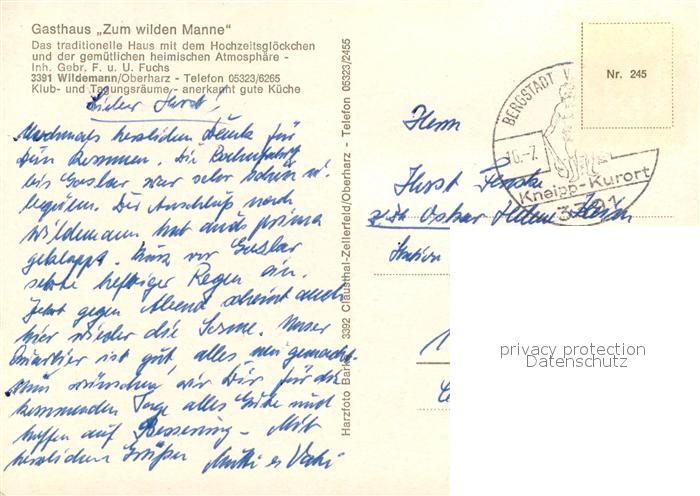 Gasthaus „Zum wilden Manne"
Das traditionelle Haus mit dem Hochzeitsglöckchen
und der gemütlichen heimischen Atmosphäre -
Inh. Gebr. F. u. U. Fuchs
3391 Wildemann/Oberharz - Telefon 05323/6265
Klub- und Tagungsräume - anerkannt gute Küche
Lieber Horst!
Nochmals herzlichen Dank für
Dein Kommen. Die Bahnfahrt
bis Goslar war sehr schön u.
bequem. Der Anschluß nach
Wildemann hat auch prima
geklappt. Kurz vor Goslar
setzte heftiger Regen ein.
Jetzt gegen Abend scheint auch
hier wieder die Sonne. Unser
Quartier ist gut, alles neu gemacht.
Nun wünschen wir Dir für die
kommenden Tage alles Gute und
hoffen auf Besserung. Mit
herzlichen Grüßen Mutti u. Vati
Harzfoto Barke 3392 Clausthal-Zellerfeld/Oberharz - Telefon 05323/2455
Nr. 245
BERGSTADT W
10.-7.
Kneipp-Kurort
3391
Herrn
Horst
Oskar Helene Heim
Station
privacy protection
Datenschutz